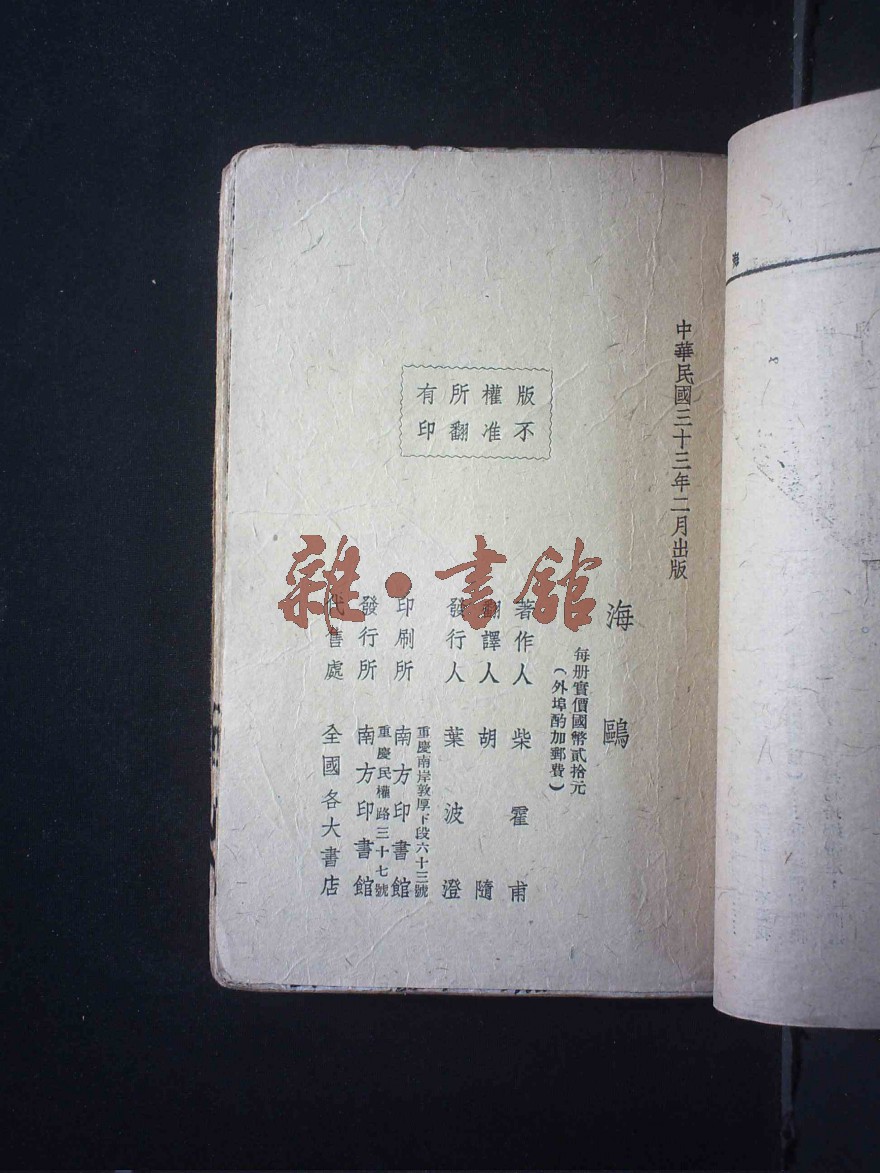 中華民國三十三年二月出版
版權所有
不准翻印
海鷗
每册實價國幣貳拾元
(外埠酌加郵費)
著作人 柴霍甫
翻譯人 胡隨
發行人 葉波澄
重慶南岸敦厚下段六十三號
印刷所 南方印書館
重慶民權路三十七號
發行所 南方印書館
代售處 全國各大書店
雜·書舘